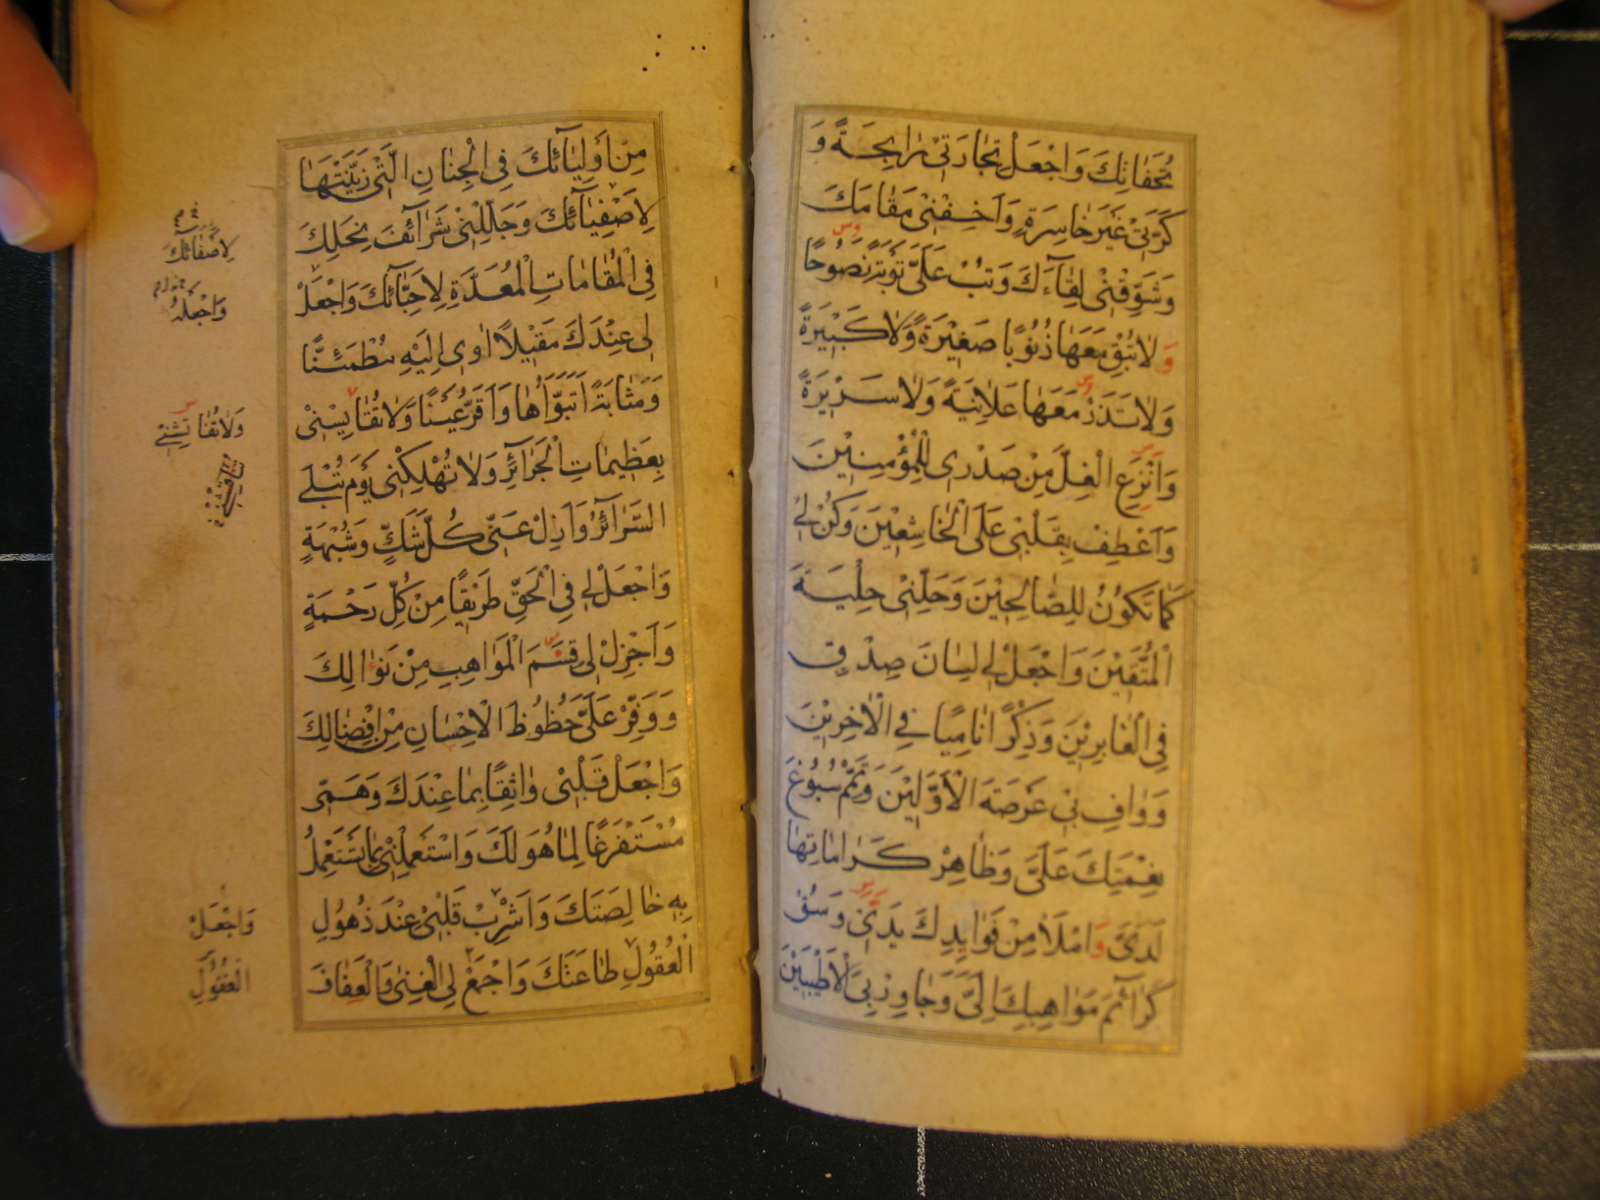 بُحَفَائِكَ وَاجْعَلْ تِجَارَتِي رَابِحَةً وَ
كَرَّتِي غَيْرَ خَاسِرَةٍ وَاَخِفْنِي مَقَامَكَ
وَشَوِّقْنِي لِقَآءَكَ وَتُبْ عَلَيَّ تَوْبَةً نَصُوحًا
وَلَا تُبْقِ مَعَهَا ذُنُوبًا صَغِيرَةً وَلَا كَبِيرَةً
وَلَا تَذَرْ مَعَهَا عَلَانِيَةً وَلَا سَرِيرَةً
وَانْزِعِ الْغِلَّ مِنْ صَدْرِي لِلْمُؤْمِنِينَ
وَاَعْطِفْ بِقَلْبِي عَلَى الْخَاشِعِينَ وَكُنْ لِي
كَمَا تَكُونُ لِلصَّالِحِينَ وَحَلِّنِي حِلْيَةَ
الْمُتَّقِينَ وَاجْعَلْ لِي لِسَانَ صِدْقٍ
فِي الْغَابِرِينَ وَذِكْرًا نَامِيًا فِي الْاٰخِرِينَ
وَوَافِ بِي عَرْصَةَ الْاَوَّلِينَ وَتَمِّمْ سُبُوغَ
نِعْمَتِكَ عَلَيَّ وَظَاهِرْ كَرَامَاتِهَا
لَدَيَّ وَامْلَأْ مِنْ فَوَايِدِكَ يَدَيَّ وَسُقْ
كَرَآئِمَ مَوَاهِبِكَ اِلَيَّ وَجَاوِرْ بِيَ الْاَطْيَبِينَ
مِنْ اَوْلِيَآئِكَ فِي الْجِنَانِ الَّتِي زَيَّنْتَهَا
لِاَصْفِيَآئِكَ وَجَلِّلْنِي شَرَآئِفَ نِحَلِكَ
فِي الْمُقَامَاتِ الْمُعَدَّةِ لِاَحِبَّآئِكَ وَاجْعَلْ
لِي عِنْدَكَ مَقِيلًا اٰوِي اِلَيْهِ مُطْمَئِنًّا
وَمَثَابَةً اَتَبَوَّاُهَا وَاَقَرُّ عَيْنًا وَلَا تُقَايِسْنِي
بِعَظِيمَاتِ الْجَرَآئِرِ وَلَا تُهْلِكْنِي يَوْمَ تُبْلَى
السَّرَآئِرُ وَاَزِلْ عَنِّي كُلَّ شَكٍّ وَشُبْهَةٍ
وَاجْعَلْ لِي فِي الْحَقِّ طَرِيقًا مِنْ كُلِّ رَحْمَةٍ
وَاَجْزِلْ لِي قِسَمَ الْمَوَاهِبِ مِنْ نَوَالِكَ
وَوَفِّرْ عَلَيَّ حُظُوظَ الْاِحْسَانِ مِنْ اِفْضَالِكَ
وَاجْعَلْ قَلْبِي وَاثِقًا بِمَا عِنْدَكَ وَهَمِّي
مُسْتَفْرَغًا لِمَا هُوَ لَكَ وَاسْتَعْمِلْنِي بِمَا تَسْتَعْمِلُ
بِهِ خَالِصَتَكَ وَاَشْرِبْ قَلْبِي عِنْدَ ذُهُولِ
الْعُقُولِ طَاعَتَكَ وَاجْمَعْ لِي الْغِنَى وَالْعَفَافَ
لِاَصْفَائِكَ
وَلَا تُقَا
وَاجْعَلْ
الْعُقُولِ